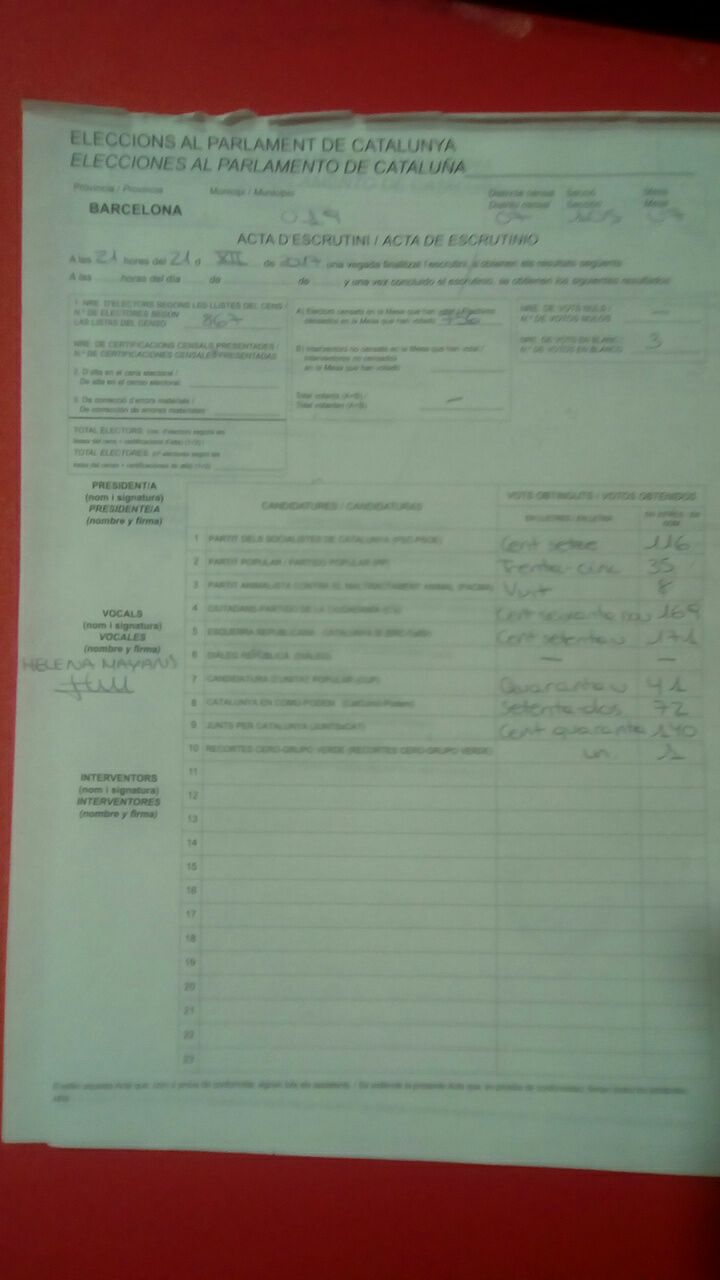 ELECCIONS AL PARLAMENT DE CATALUNYA
ELECCIONES AL PARLAMENTO DE CATALUÑA
Província / Provincia Municipi / Municipio Districte censal Secció Mesa
Distrito censal Sección Mesa
BARCELONA 019 07
ACTA D'ESCRUTINI / ACTA DE ESCRUTINIO
A les 21 hores del 21 d XII de 2017 una vegada finalitzat l'escrutini, s'obtenen els resultats següents:
A las horas del día de de y una vez concluido el escrutinio, se obtienen los siguientes resultados:
1. NRE. D'ELECTORS SEGONS LES LLISTES DEL CENS /
N.º DE ELECTORES SEGÚN
LAS LISTAS DEL CENSO 867
NRE. DE CERTIFICACIONS CENSALS PRESENTADES /
N.º DE CERTIFICACIONES CENSALES PRESENTADAS
2. D'alta en el cens electoral /
De alta en el censo electoral
3. De correcció d'errors materials /
De corrección de errores materiales
TOTAL ELECTORS
TOTAL ELECTORES
A) Electors censats en la Mesa que han votat / Electores
censados en la Mesa que han votado 756
B) Interventors no censats en la Mesa que han votat /
Interventores no censados
en la Mesa que han votado
Total votants (A+B) /
Total votantes (A+B) —
NRE. DE VOTS NULS /
N.º DE VOTOS NULOS —
NRE. DE VOTS EN BLANC /
N.º DE VOTOS EN BLANCO 3
PRESIDENT/A
(nom i signatura)
PRESIDENTE/A
(nombre y firma)
VOCALS
(nom i signatura)
VOCALES
(nombre y firma)
HELENA MAYANS
INTERVENTORS
(nom i signatura)
INTERVENTORES
(nombre y firma)
CANDIDATURES / CANDIDATURAS VOTS OBTINGUTS / VOTOS OBTENIDOS
EN LLETRES / EN LETRA
1 PARTIT DELS SOCIALISTES DE CATALUNYA (PSC-PSOE) Cent setze 116
2 PARTIT POPULAR / PARTIDO POPULAR (PP) Trenta-cinc 35
3 PARTIT ANIMALISTA CONTRA EL MALTRACTAMENT ANIMAL (PACMA) Vuit 8
4 CIUTADANS-PARTIDO DE LA CIUDADANÍA (C's) Cent seixanta nou 169
5 ESQUERRA REPUBLICANA - CATALUNYA SÍ (ERC-CatSí) Cent setenta u 171
6 DIÀLEG REPÚBLICA (DIÀLEG) — —
7 CANDIDATURA D'UNITAT POPULAR (CUP) Quaranta u 41
8 CATALUNYA EN COMÚ-PODEM (CatComú-Podem) Setenta-dos 72
9 JUNTS PER CATALUNYA (JUNTSxCAT) Cent quaranta 140
10 RECORTES CERO-GRUPO VERDE (RECORTES CERO-GRUPO VERDE) un 1
11
12
13
14
15
16
17
18
19
20
21
22
23